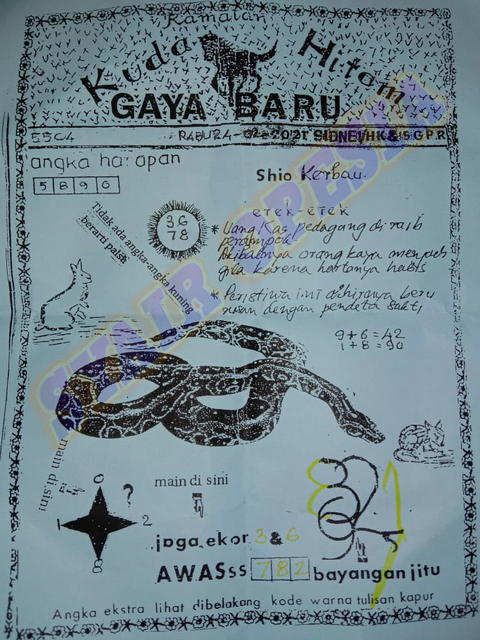 Ramalan
Kuda Hitam
GAYA BARU
RABU 24-02-2021 SIDNEY/HK & SGPR
angka harapan
5890
Shio Kerbau
Tidak ada angka-angka kuning
berarti palsu
36
78
ETEK-ETEK
* Uang Kas pedagang di raib
perampok
Akibatnya orang kaya menjadi
gila karena hartanya habis
* Peristiwa ini dihiranya beru
rusan dengan pendeta sakti
9+6=42
1+8=90
main di sini
0
?
1
2
8
main di sini
jaga ekor 3 & 6
AWASss 782 bayangan jitu
Angka ekstra lihat dibelakang kode warna tulisan kapur